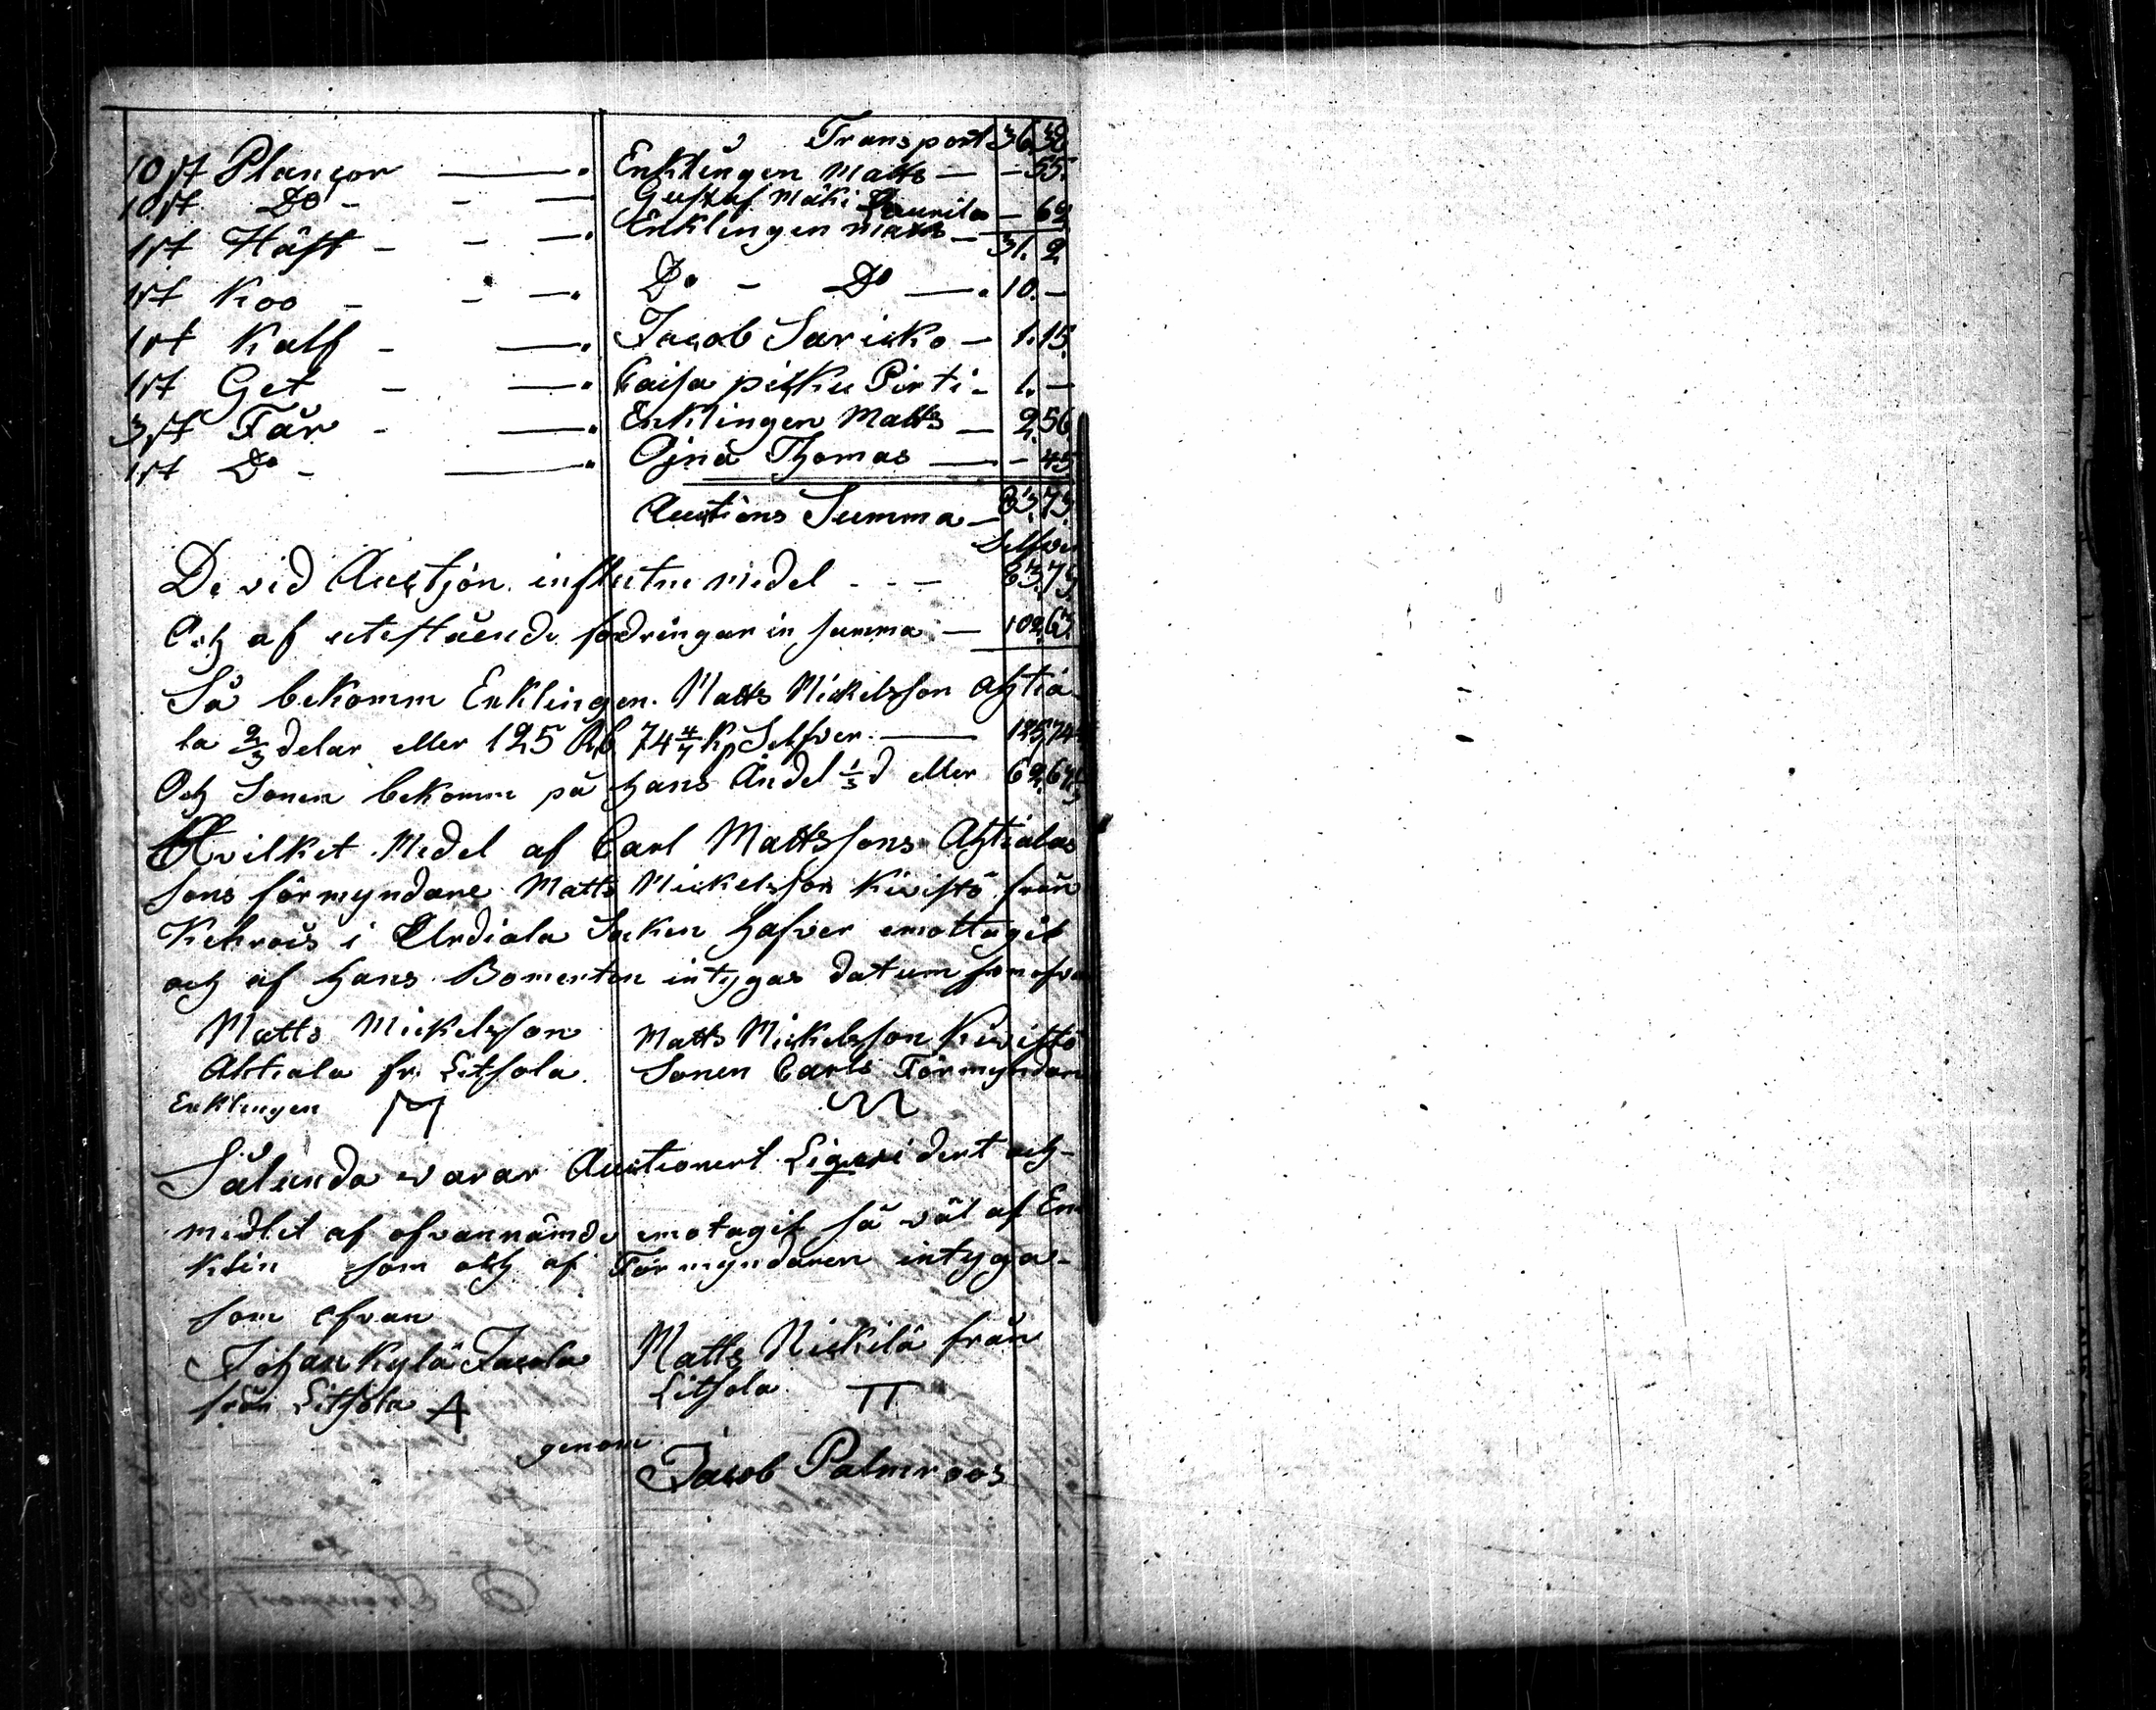 Transport 36.30
10 st Plancor — Enklingen Matts — - 55.
10 st Do - - — Gustaf Mäki Laurila — 62
1 st Häst - - — Enklingen Matts — 31. 2
1 st Koo - - — Do - Do — 10. —
1 st Kalf - — Jacob Saricko — 1.15.
1 st Get - — Caisa pitku Pirti - 1. —
3 st Får - — Enklingen Matts — 2.56
1 st Do - — Ojna Thomas — - 45
Auctions Summa — 83.75.
Selfver
De vid Auctjon influtne medel - - - 83.75.
Och af utestående fodringar in summa — 102.67.
Så bekomm Enklingen Matts Mickelsson Ahtia
la 2/3 delar eller 125 Rb 74 4/7 Kp Selfver — 125.74
Och Sonen bekomm på hans Andel 1/3 d eller 62.67
Hvilket Medel af Carl Mattssons Ahtialas
sons förmyndare Matts Mickelsson Kivistö från
Kehrois i Urdiala Socken hafver emottagit
och af hans Bomerken intygas datum som ofvan
Matts Mickelsson Matts Mickelsson Kivistö
Ahtiala fr. Litsola. Sonen Carls Förmyndare
Enklingen
Sålunda varar Auctionert Liqvidert och
medlet af ofvannämde emotagit så väl af En
klin som och af Förmyndaren intyga-
som ofvan
Johan Kylä Jacola Matts Nickilä från
från Litsola Litsola
genom
Jacob Palmroos